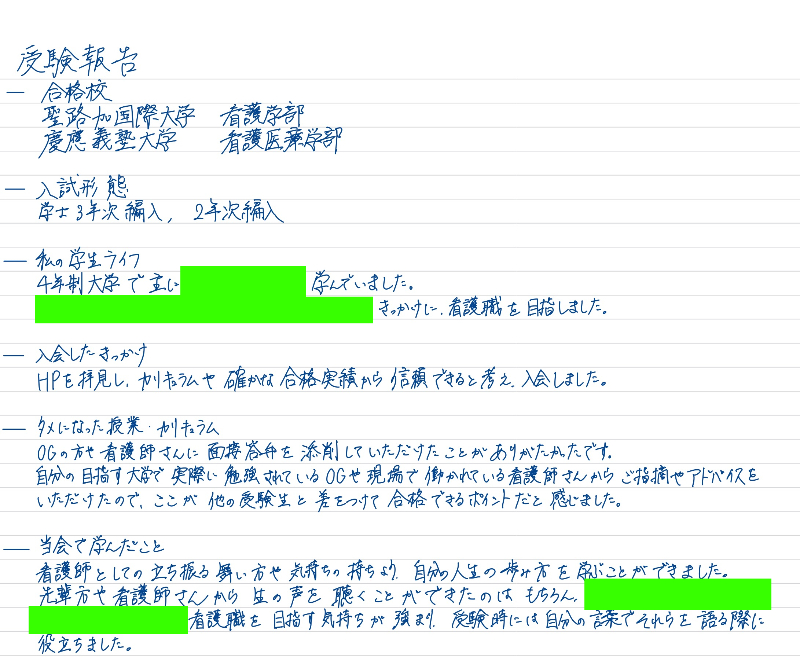 受験報告
― 合格校
聖路加国際大学 看護学部
慶應義塾大学 看護医療学部
― 入試形態
学士3年次編入, 2年次編入
― 私の学生ライフ
4年制大学で主に 学んでいました。
きっかけに、看護職を目指しました。
― 入会したきっかけ
HPを拝見し、カリキュラムや確かな合格実績から信頼できると考え、入会しました。
― タメになった授業・カリキュラム
OGの方や看護師さんに面接答弁を添削していただけたことがありがたかったです。
自分の目指す大学で実際に勉強されているOGや現場で働かれている看護師さんからご指摘やアドバイスを
いただけたので、ここが他の受験生と差をつけて合格できるポイントだと感じました。
― 当会で学んだこと
看護師としての立ち振る舞い方や気持ちの持ちより、自分の人生の歩み方を学ぶことができました。
先輩方や看護師さんから生の声を聴くことができたのはもちろん、
看護職を目指す気持ちが強まり、受験時には自分の言葉でそれらを語る際に
役立ちました。